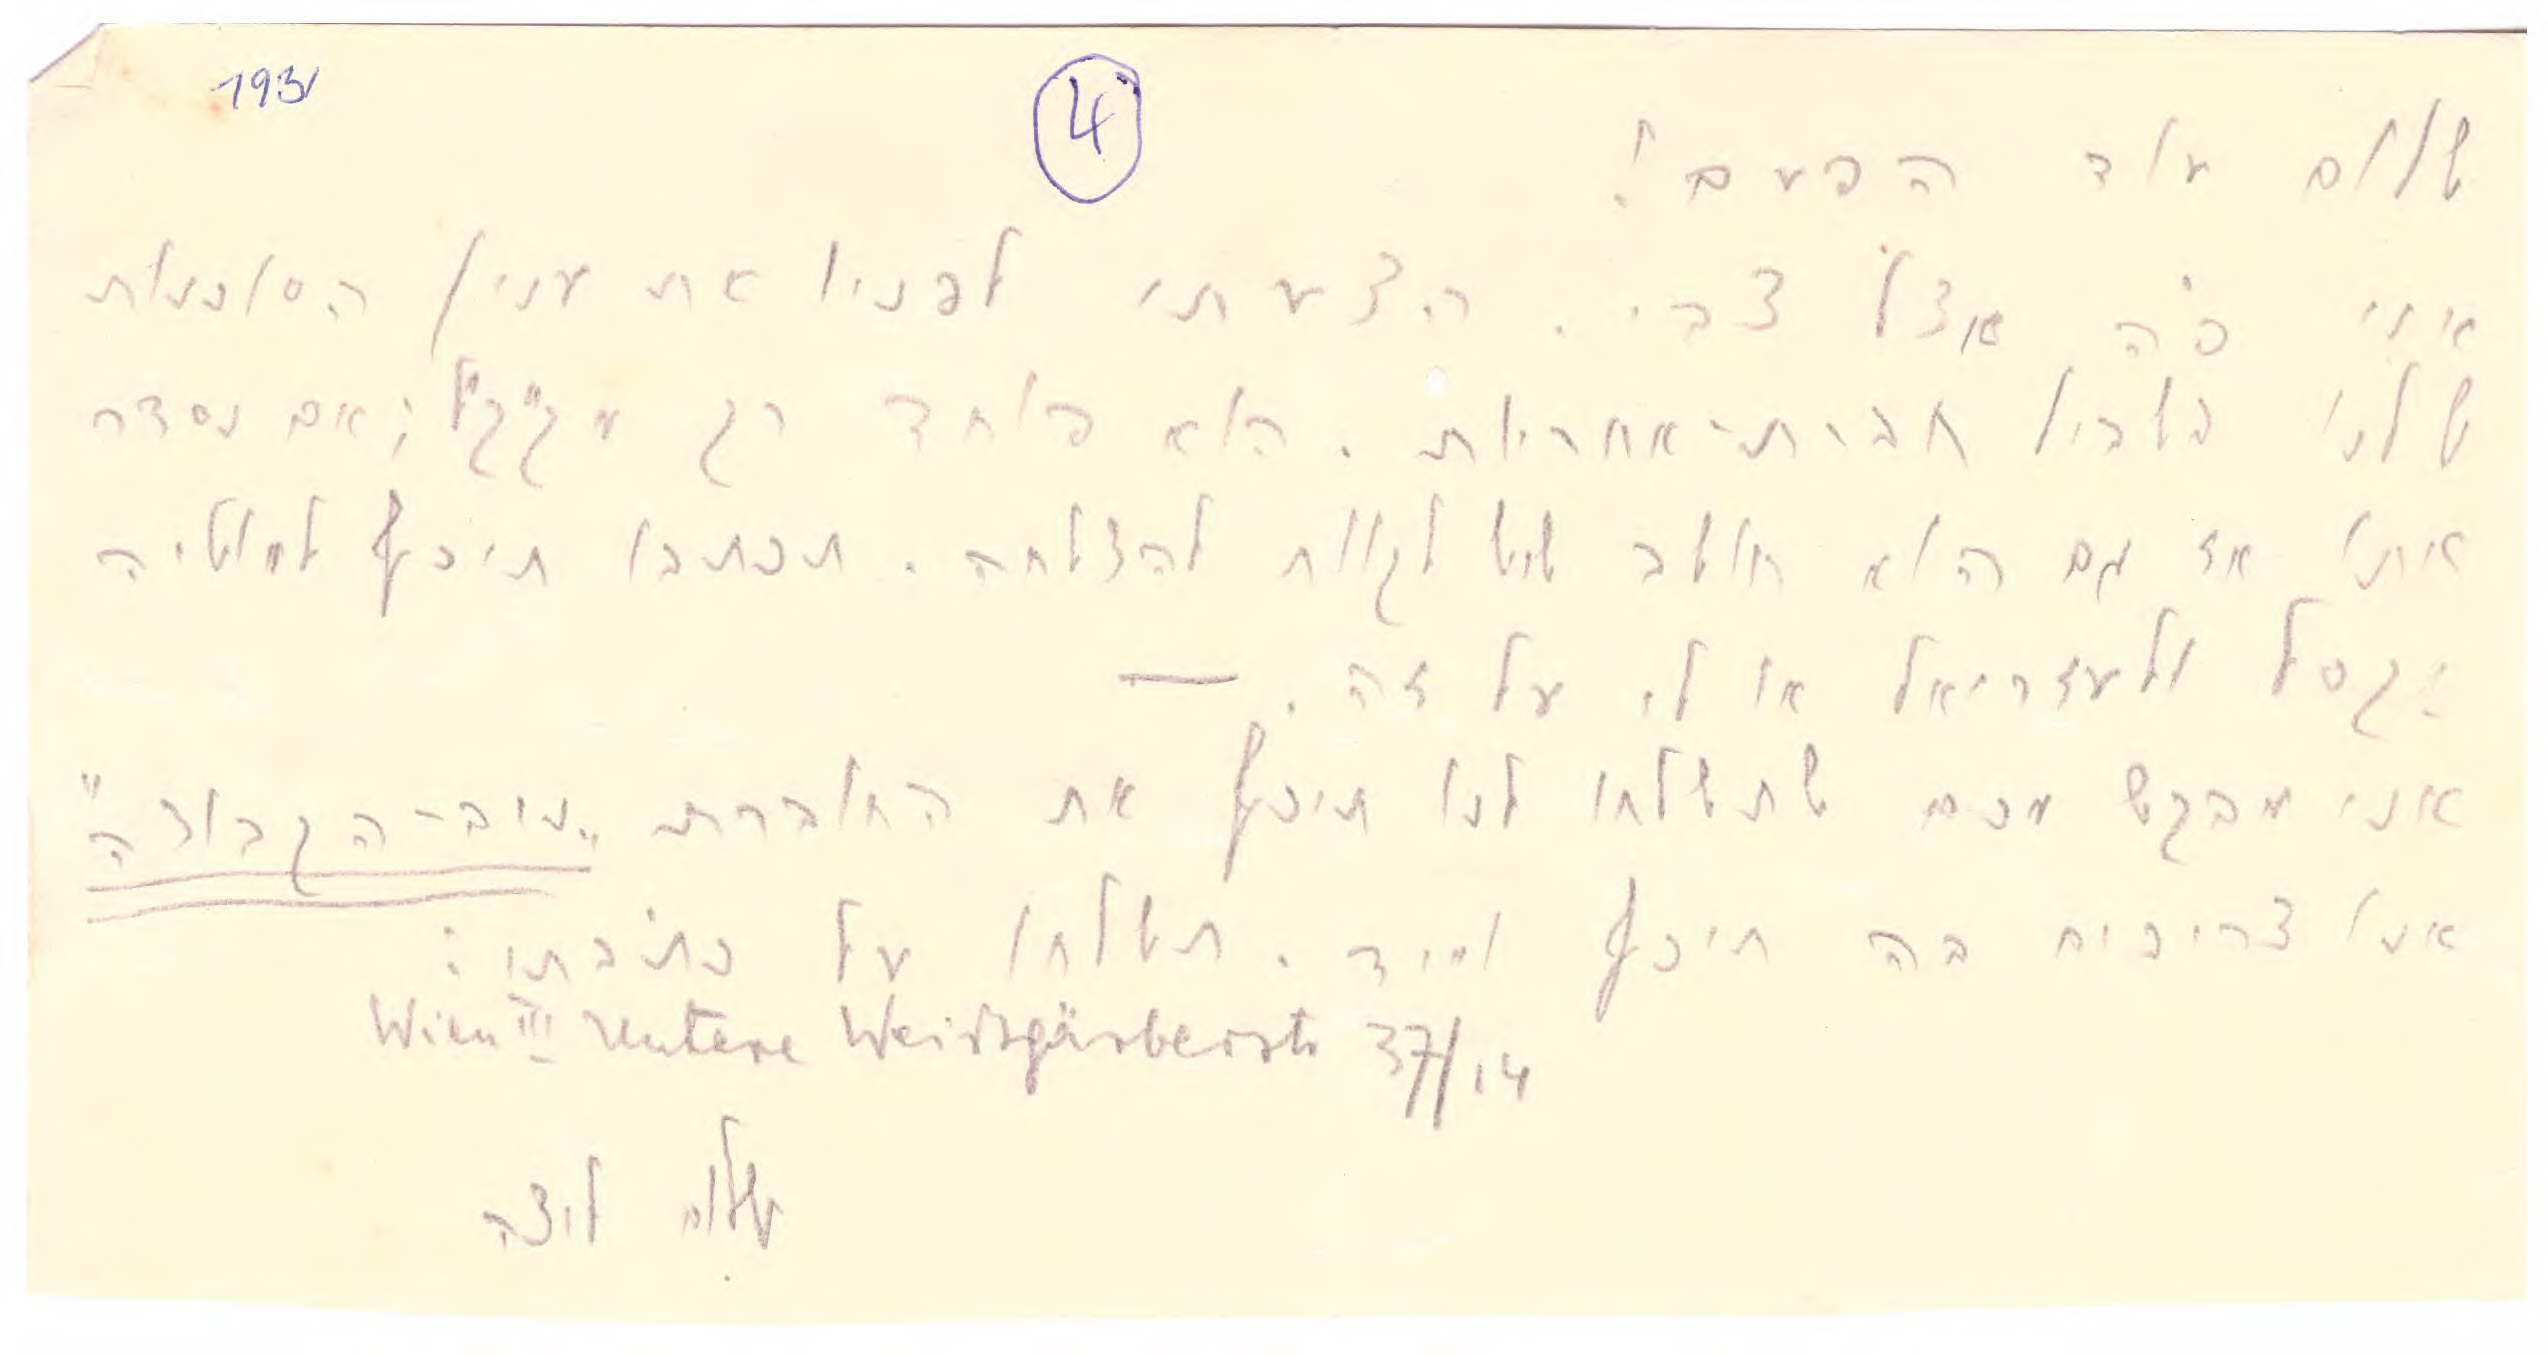 1931
4
שלום עוד הפעם!
אני פה אצל צבי. הצעתי לפניו את ענין הסוכנות
שלנו בשביל חברת-אחריות. הוא פוחד רק מקק"ל; אם נסדה
אתו אז גם הוא חושב שיש לקוות להצלחה. תכתבו תיכף למושיה
יקסל ולעזריאל או לי על זה. —
אני מבקש מכם שתשלחו לנו תיכף את החוברת „ניב-הקבוצה"
אנו צריכים בה תיכף ומיד. תשלחו על כתֹבתו:
Wien III untere Weissgärberstr 37/14
שלום ליצה